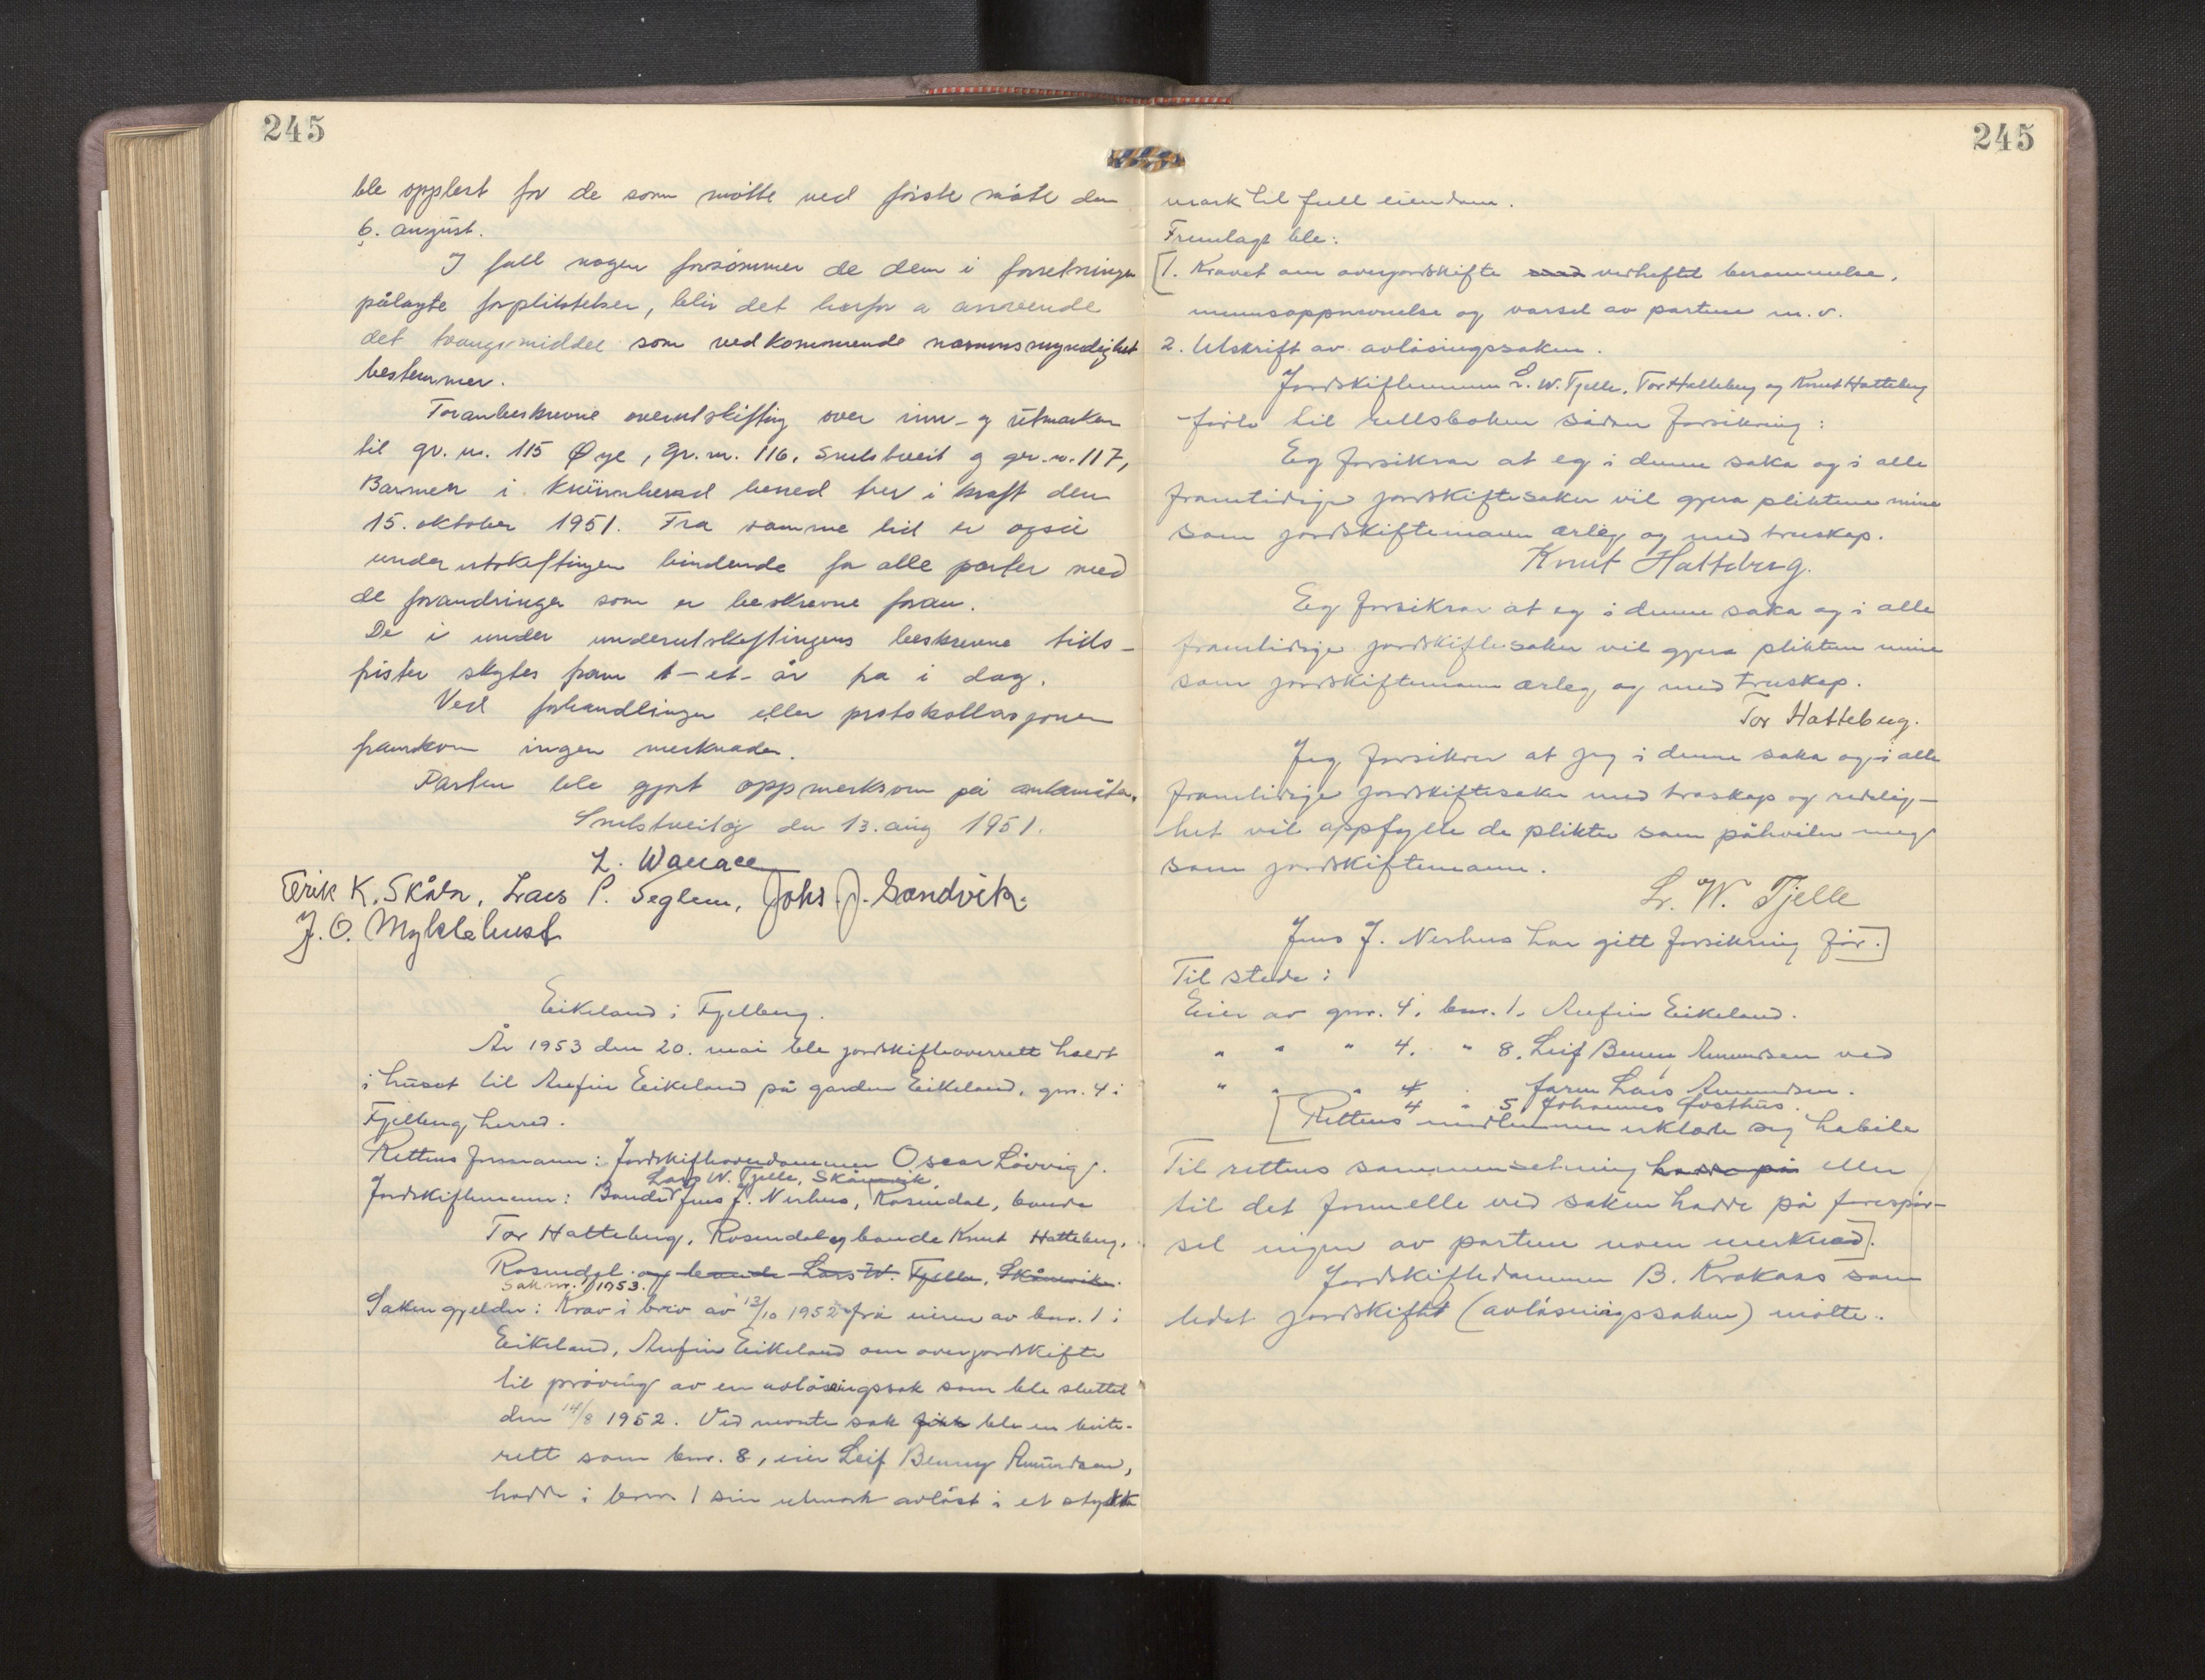 245
ble opplest for de som møtte ved første møte den
6. august.
I fall nogen forsømmer de dem i forretningen
pålagte forpliktelser, blir det herfor a anvende
det tvangsmiddel som vedkommende namnsmyndighet
bestemmer.
Foranbeskrevne overutskifting over inn- og utmarken
til gr. nr. 115 Øye, gr. nr. 116, Snilstveit og gr. nr. 117,
Barmen i Kvinnherad herred trer i kraft den
15. oktober 1951. Fra samme tid er også
underutskiftingen bindende for alle parter med
de forandringer som er beskrevne foran.
De i under underutskiftingens beskrevne tids-
frister skytes fram 1 - et - år fra i dag.
Ved forhandlinger eller protokollasjonen
framkom ingen merknader.
Parten ble gjort oppmerksom på ankemåten.
Snilstveitøy den 13. aug 1951.
L. Wallace
Erik K. Skåla, Lars P. Seglem, Johs. J. Sandvik.
J. O. Myklebust
Eikeland i Fjelberg.
År 1953 den 20. mai ble jordskifteoverrett holdt
i huset til Anfin Eikeland på garden Eikeland, gnr. 4 i
Fjelberg herred.
Rettens formann: Jordskifteoverdommer Oscar Løvvig.
Lars W. Tjelle, Skånevik,
Jordskiftemenn: Bonde Jens J. Nerhus, Rosendal, bonde
Tor Hatteberg, Rosendal og bonde Knut Hatteberg,
Rosendal. og bonde Lars W. Tjelle, Skånevik.
Sak nr. 1/1953.
Saken gjelder: Krav i brev av 13/10 1952 frå eieren av bnr. 1 i
Eikeland, Anfin Eikeland om overjordskifte
til prøving av en avløsingssak som ble sluttet
den 14/8 1952. Ved nevnte sak fikk ble en beite-
rett som bnr. 8, eier Leif Benny Amundsen,
hadde i bnr. 1 sin utmark avløst i et stykke
245
mark til full eiendom.
Fremlagt ble:
[1. Kravet om overjordskifte med vedheftet berammelse,
mennsoppnevnelse og varsel av partene m.v.
2. Utskrift av avløsingssaken.
Jordskiftemennene L. W. Tjelle, Tor Hatteberg og Knut Hatteberg
førte til rettsboken sådan forsikring:
Eg forsikrar at eg i denne saka og i alle
framtidige jordskiftesaker vil gjera pliktene mine
som jordskiftemann ærleg og med truskap.
Knut Hatteberg.
Eg forsikrar at eg i denne saka og i alle
framtidige jordskiftesaker vil gjera pliktene mine
som jordskiftemann ærleg og med truskap.
Tor Hatteberg.
Jeg forsikrer at jeg i denne saka og i alle
framtidige jordskiftesaker med troskap og redelig-
het vil oppfylle de plikter som påhviler meg
som jordskiftemann.
Lr. W. Tjelle
Jens J. Nerhus har gitt forsikring før.]
Til stede:
Eier av gnr. 4, bnr. 1, Anfin Eikeland.
" " " 4. " 8. Leif Benny Amundsen ved
" " " 4 faren Lars Amundsen.
4 " 5 Johannes Gosthus.
[Rettens medlemmer erklærte seg habile
Til rettens sammensetning hadde på eller
til det formelle ved saken hadde på forespør-
sel ingen av partene noen merknad].
Jordskiftedommer B. Krakaas som
ledet jordskiftet (avløsningssaken) møtte.